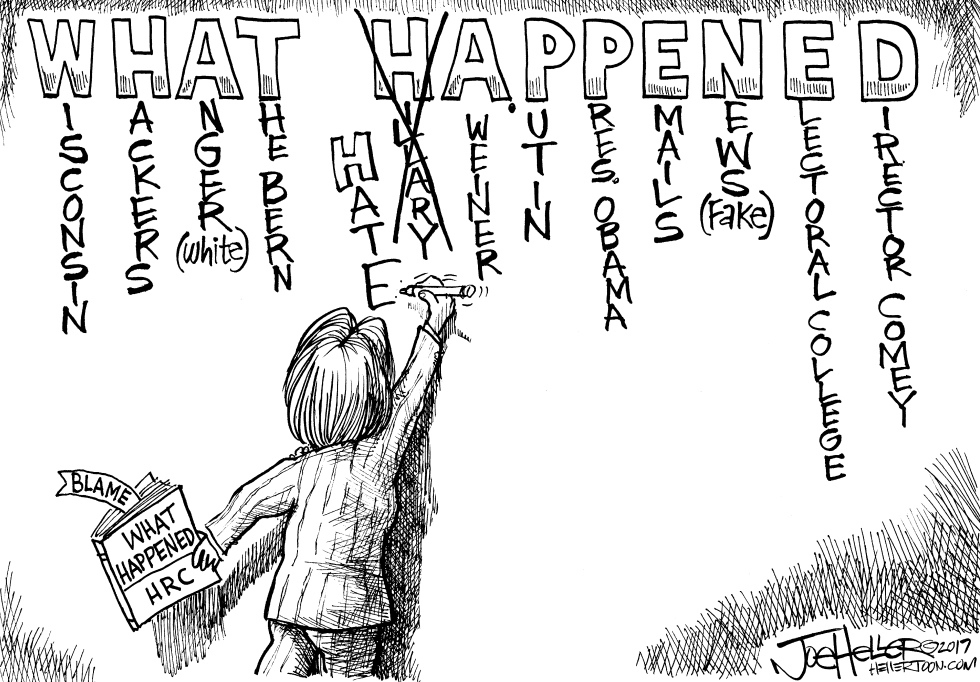 WHAT HAPPENED
WISCONSIN
HACKERS
ANGER
(white)
THE BERN
HATE
HILLARY
A. WEINER
PUTIN
PRES. OBAMA
EMAILS
NEWS
(Fake)
ELECTORAL COLLEGE
DIRECTOR COMEY
BLAME
WHAT
HAPPENED
HRC
JOE HELLER © 2017
HELLERTOON.COM